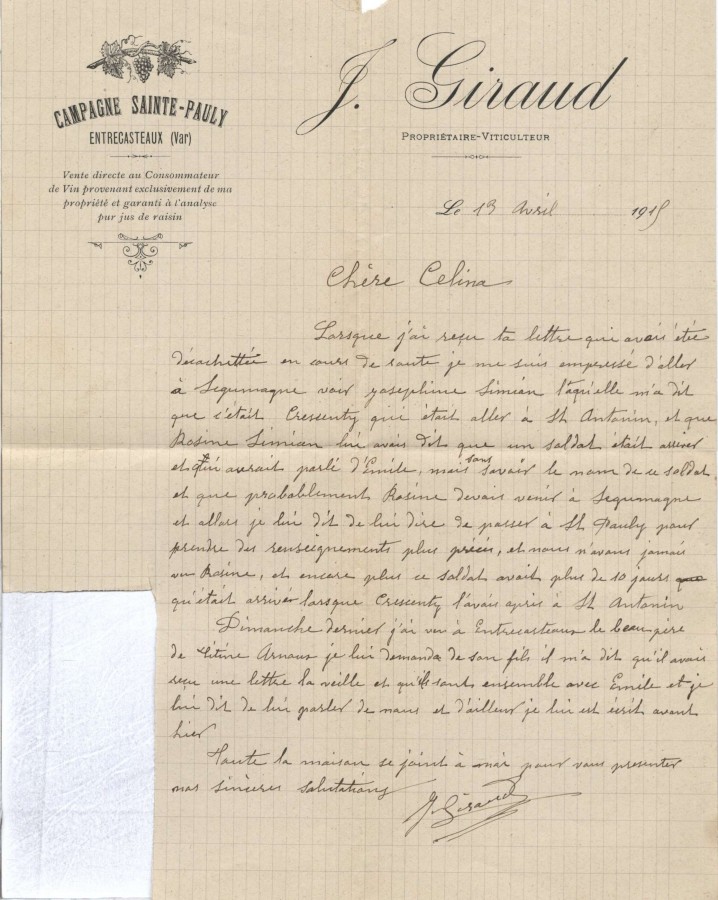 CAMPAGNE SAINTE-PAULY
ENTRECASTEAUX (Var)
Vente directe au Consommateur
de Vin provenant exclusivement de ma
propriété et garanti à l'analyse
pur jus de raisin
J. Giraud
PROPRIÉTAIRE-VITICULTEUR
Le 13 Avril 1915
Chère Celina
Lorsque j'ai reçu ta lettre qui avais étée
décachettée en cours de route je me suis empressé d'aller
à Segumagne voir Josephine Simian l'aqu'elle m'a dit
que c'était Crescenty qui était aller à St Antonin, et que
Rosine Simian lui avais dit que un soldat était arriver
et qui aurait parlé d'Emile, mais sans savoir le nom de ce soldat
et que probablement Rosine devais venir à Segumagne
et allors je lui dit de lui dire de passer à St Pauly pour
prendre des renseignements plus précis, et nous n'avons jamais
vu Rosine, et encore plus ce soldat avait plus de 10 jours que
qu'était arriver lorsque Crescenty l'avais apris à St Antonin
Dimanche dernier j'ai vu à Entrecasteaux le beau père
de Titine Arnaux je lui demanda de son fils il m'a dit qu'il avais
reçu une lettre la veille et qu'ils sont ensemble avec Emile et je
lui dit de lui parler de nous et d'ailleur je lui est écrit avant
hier
Toute la maison se joint à moi pour vous presenter
nos sincères salutations
J. Giraud